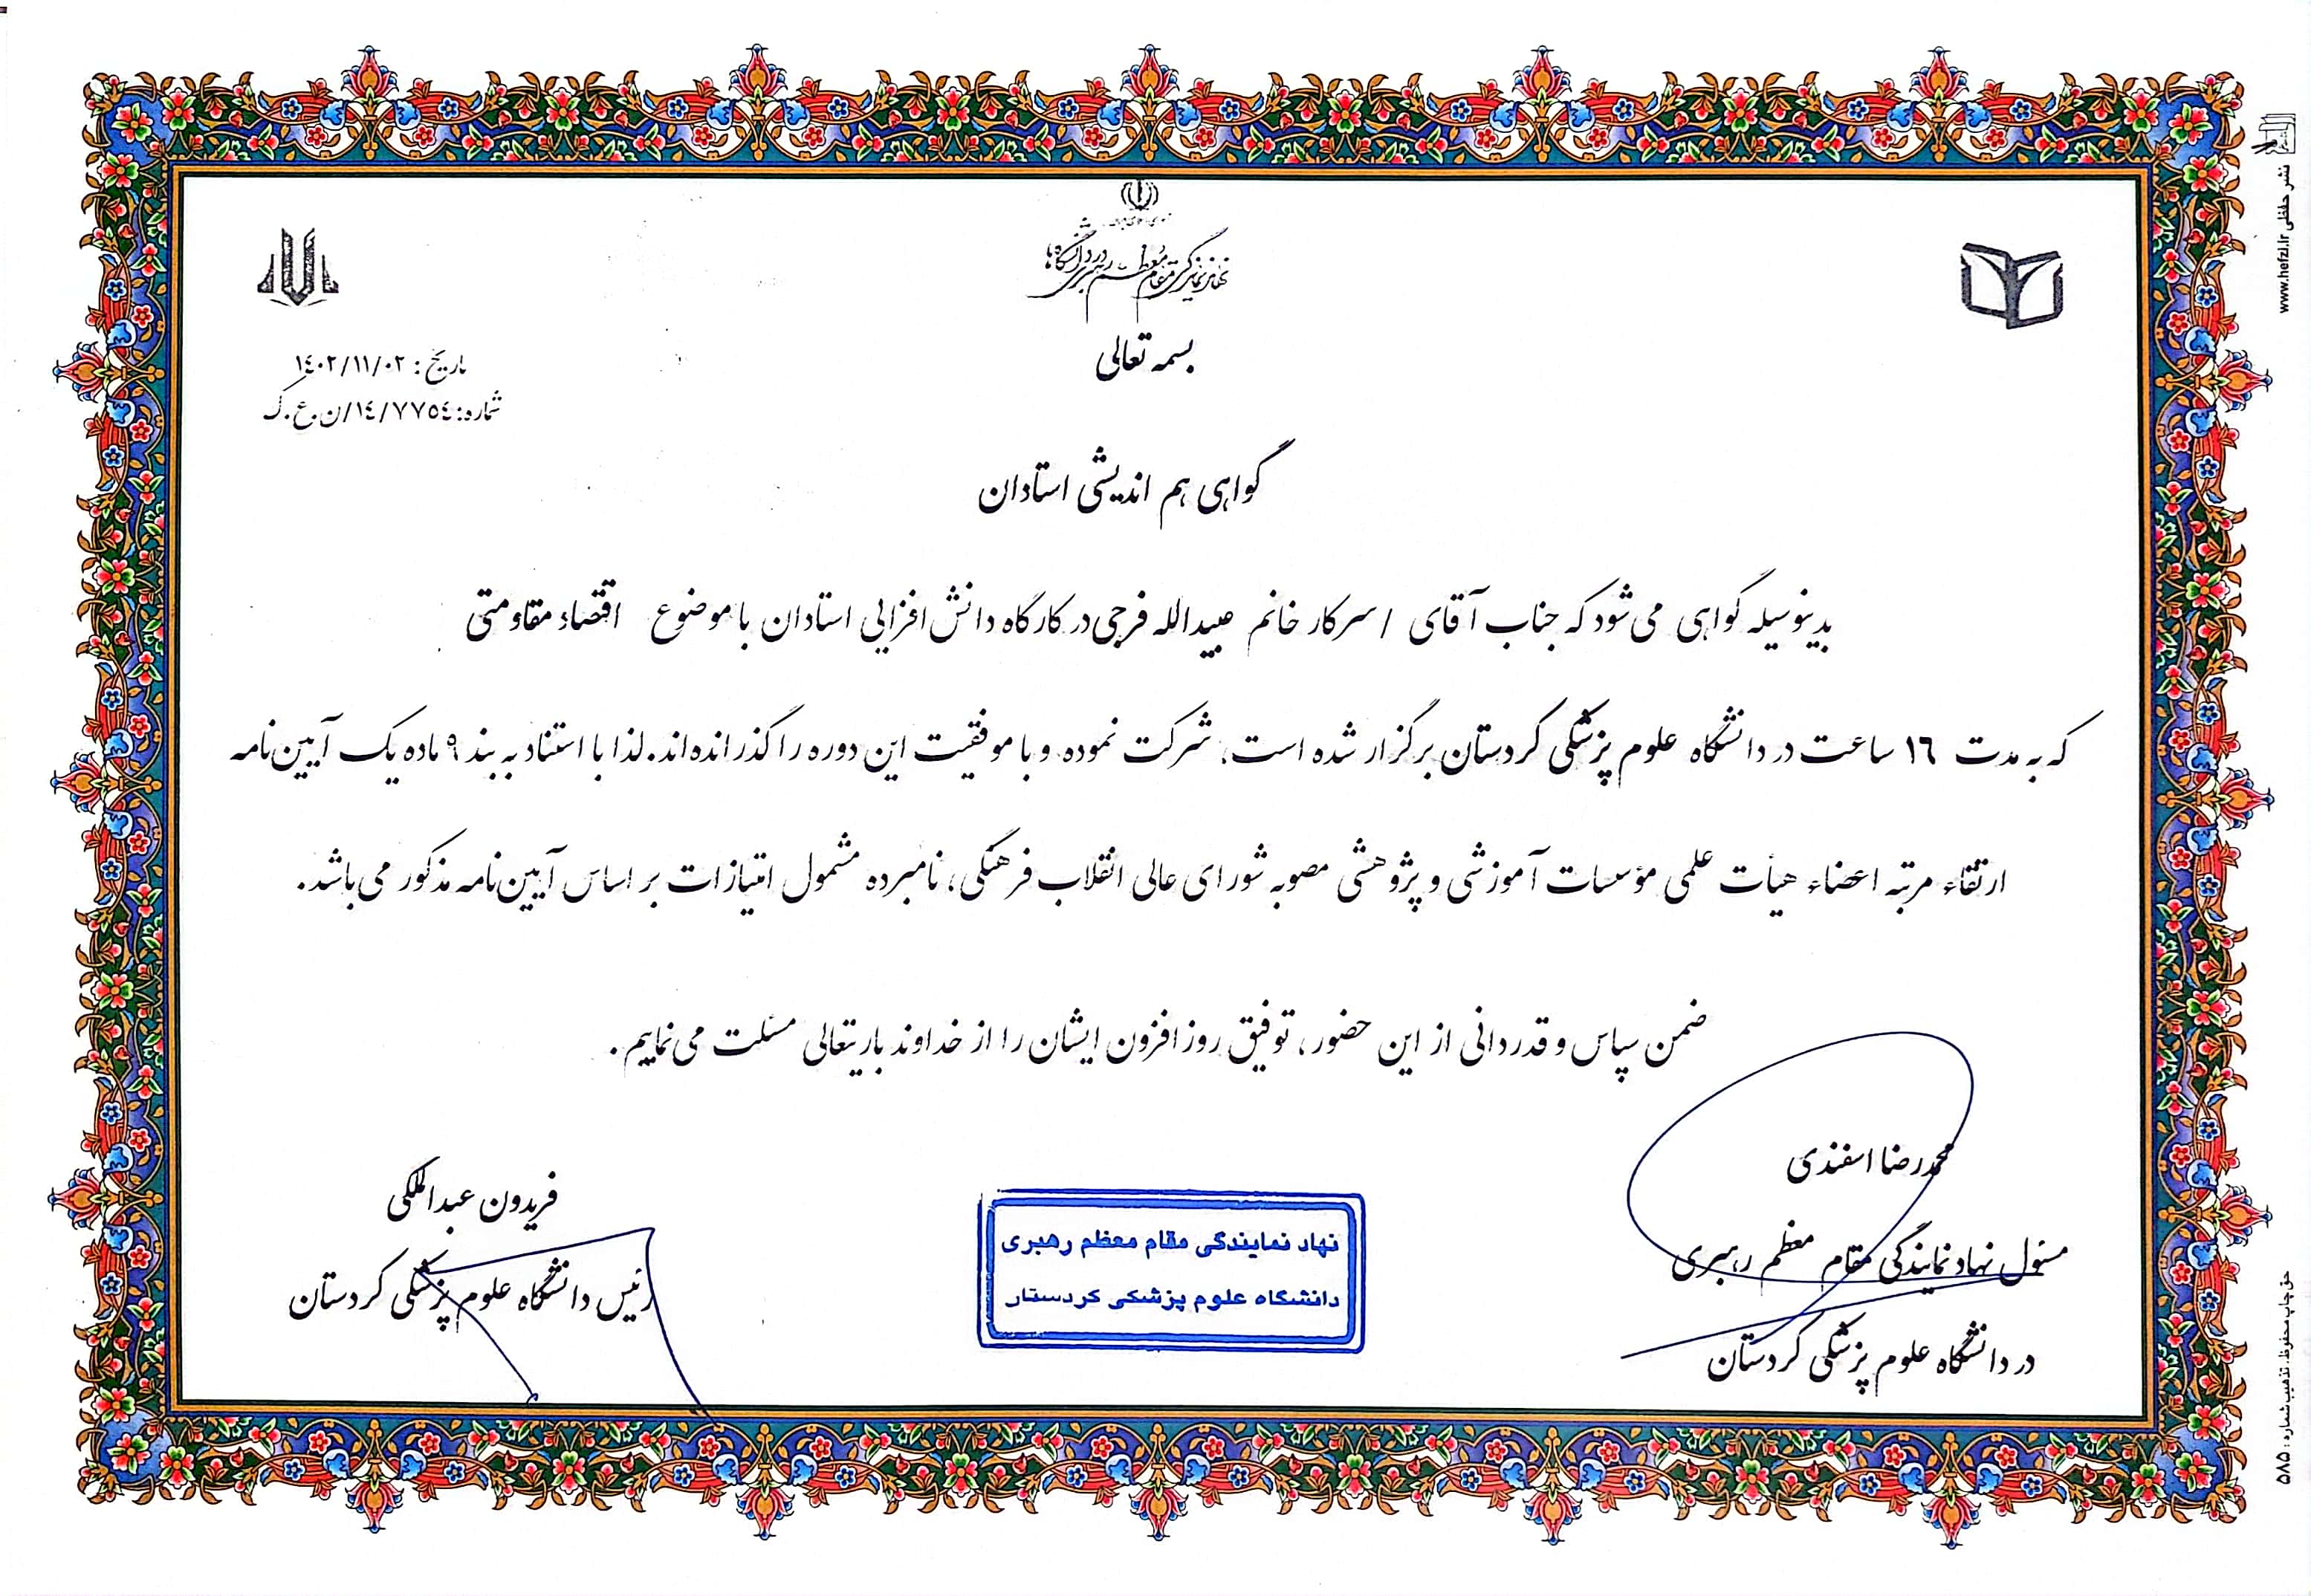 نهاد نمایندگی مقام معظم رهبری در دانشگاه‌ها
بسمه تعالی
تاریخ : ١٤٠٢/١١/٠٢
شماره: ١٤/٧٧٥٤/ن.ع.ک
گواهی هم اندیشی استادان
بدینوسیله گواهی می‌شود که جناب آقای / سرکار خانم عبیدالله فرجی در کارگاه دانش افزایی استادان با موضوع اقتصاد مقاومتی
که به مدت ١٦ ساعت در دانشگاه علوم پزشکی کردستان برگزار شده است، شرکت نموده و با موفقیت این دوره را گذرانده‌اند. لذا با استناد به بند ٩ ماده یک آیین‌نامه
ارتقاء مرتبه اعضاء هیأت علمی مؤسسات آموزشی و پژوهشی مصوبه شورای عالی انقلاب فرهنگی، نامبرده مشمول امتیازات بر اساس آیین‌نامه مذکور می‌باشد.
ضمن سپاس و قدردانی از این حضور، توفیق روز افزون ایشان را از خداوند باریتعالی مسئلت می‌نماییم.
محمدرضا اسفندی
مسئول نهاد نمایندگی مقام معظم رهبری
در دانشگاه علوم پزشکی کردستان
نهاد نمایندگی مقام معظم رهبری
دانشگاه علوم پزشکی کردستان
فریدون عبدالملکی
رئیس دانشگاه علوم پزشکی کردستان
نشر حفظی www.hefzi.ir
حق چاپ محفوظ، تذهیب شماره : ۵۸۵